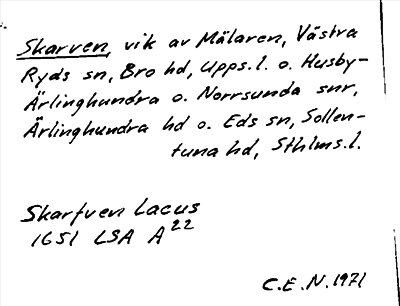 Skarven, vik av Mälaren, Västra
Ryds sn, Bro hd, Upps.l. o. Husby-
Ärlinghundra o. Norrsunda snr,
Ärlinghundra hd o. Eds sn, Sollen-
tuna hd, Sthlms.l.
Skarfven Lacus
1651 LSA A22
C.E.N. 1971